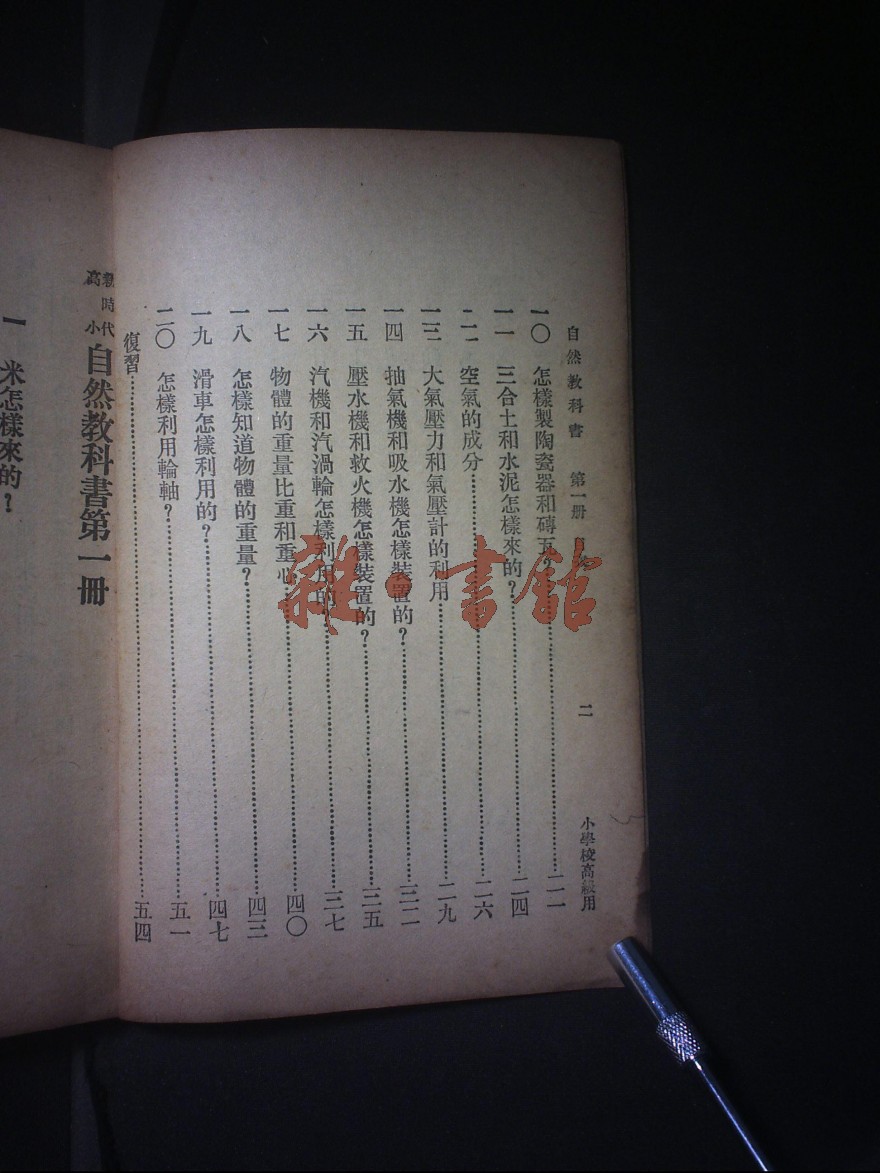 自然教科書 第一冊 目 二 小學校高級用
一〇 怎樣製陶瓷器和磚瓦?……二一
一一 三合土和水泥怎樣來的?……二四
一二 空氣的成分……二六
一三 大氣壓力和氣壓計的利用……二九
一四 抽氣機和吸水機怎樣裝置的?……三二
一五 壓水機和救火機怎樣裝置的?……三五
一六 汽機和汽渦輪怎樣利用的?……三七
一七 物體的重量比重和重心……四〇
一八 怎樣知道物體的重量?……四三
一九 滑車怎樣利用的?……四七
二〇 怎樣利用輪軸?……五一
復習……五四
新時代高小 自然教科書第一冊
一 米怎樣來的?
雜·書館